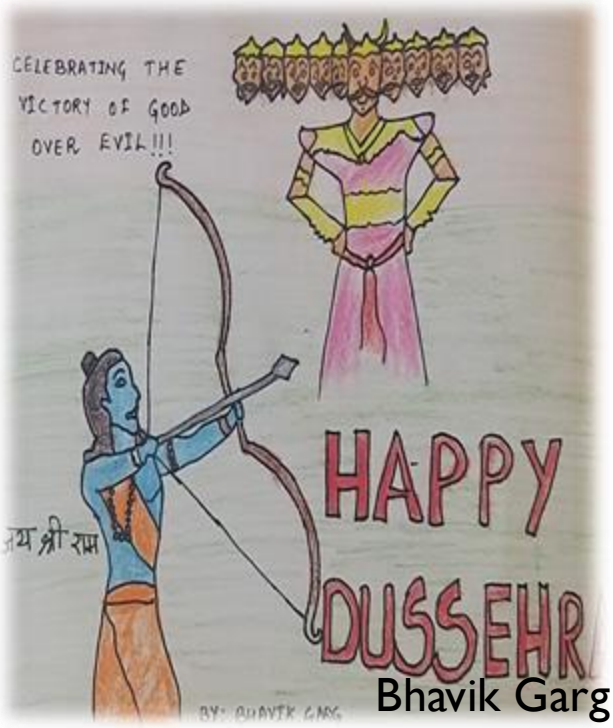 CELEBRATING THE
VICTORY OF GOOD
OVER EVIL!!!
जय श्री राम
HAPPY
DUSSEHRA
BY: BHAVIK GARG
Bhavik Garg